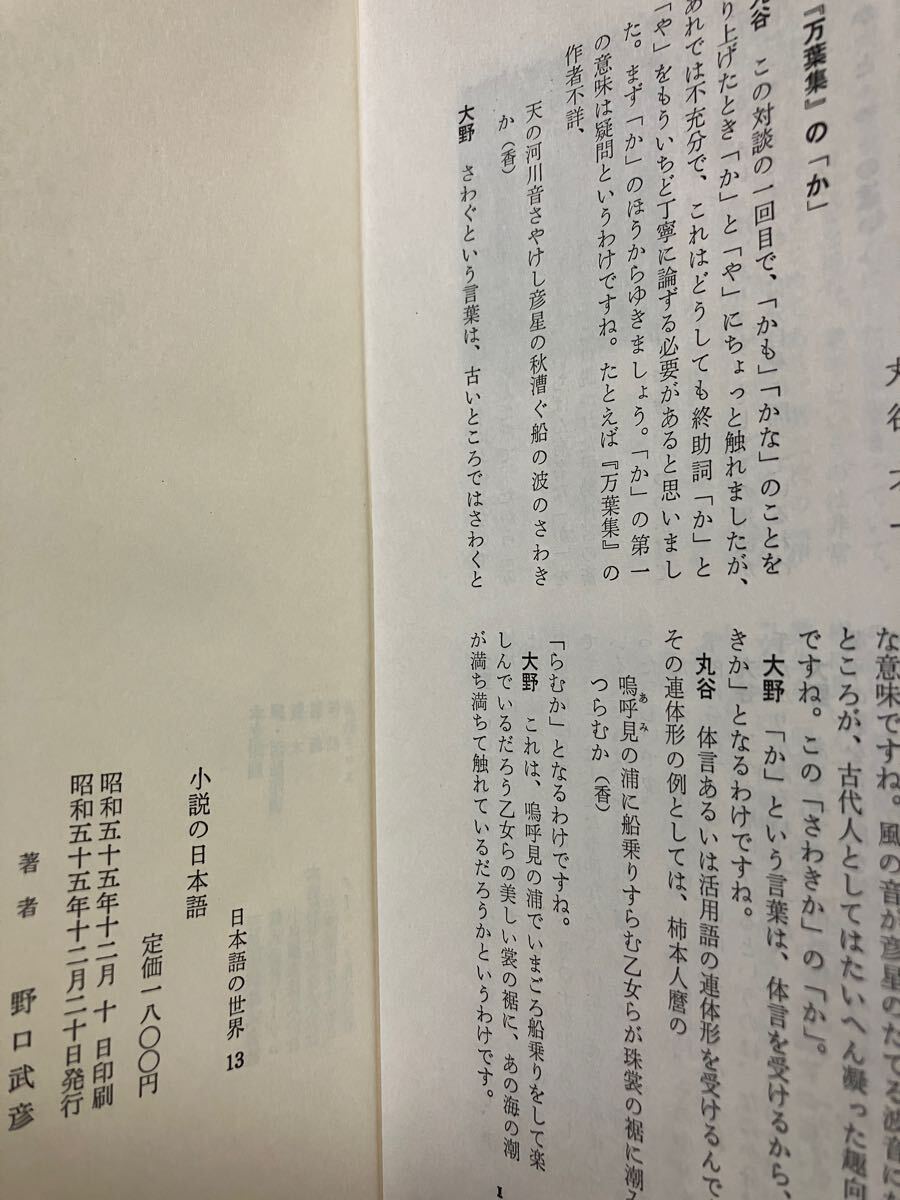 丸谷才一
『万葉集』の「か」
丸谷　この対談の一回目で、「かも」「かな」のことを
り上げたとき「か」と「や」にちょっと触れましたが、
あれでは不充分で、これはどうしても終助詞「か」と
「や」をもういちど丁寧に論ずる必要があると思いまし
た。まず「か」のほうからゆきましょう。「か」の第一
の意味は疑問というわけですね。たとえば『万葉集』の
作者不詳、
天の河川音さやけし彦星の秋漕ぐ船の波のさわき
か（香）
大野　さわぐという言葉は、古いところではさわくと
な意味ですね。風の音が彦星のたてる波音に
ところが、古代人としてはたいへん凝った趣向
ですね。この「さわきか」の「か」。
大野　「か」という言葉は、体言を受けるから、
きか」となるわけですね。
丸谷　体言あるいは活用語の連体形を受けるんで
その連体形の例としては、柿本人麿の
嗚呼見の浦に船乗りすらむ乙女らが珠裳の裾に潮み
あみ
つらむか（香）
「らむか」となるわけですね。
大野　これは、嗚呼見の浦でいまごろ船乗りをして楽
しんでいるだろう乙女らの美しい裳の裾に、あの海の潮
が満ち満ちて触れているだろうかというわけです。
1
日本語の世界 13
小説の日本語
定価一八〇〇円
昭和五十五年十二月　十　日印刷
昭和五十五年十二月二十日発行
著者　野口武彦